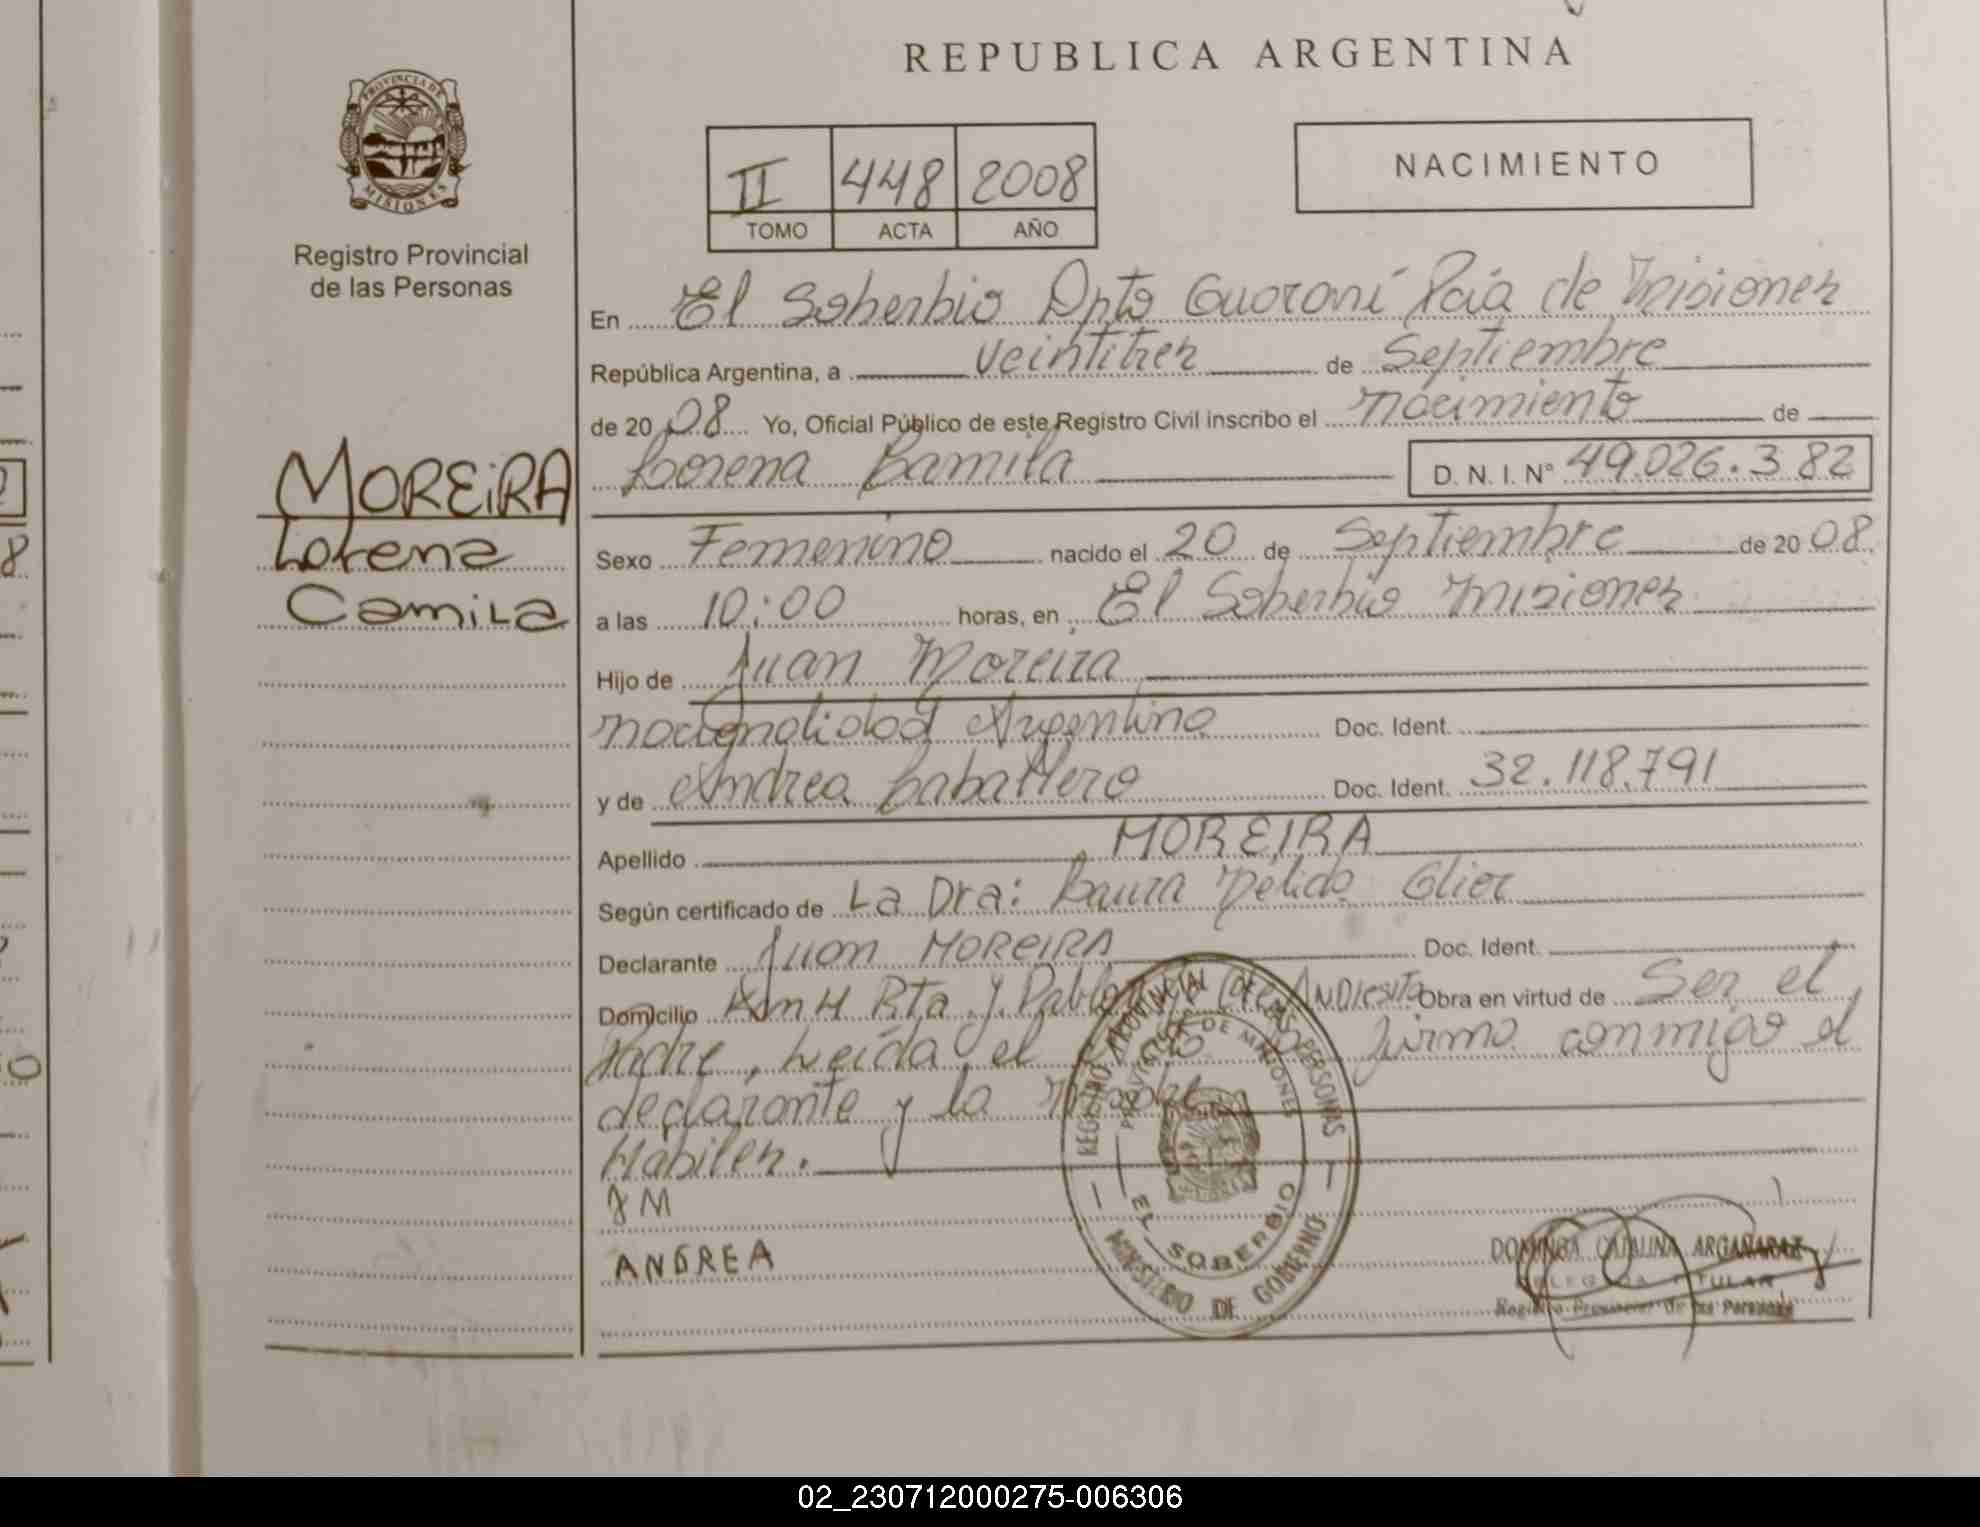 REPUBLICA ARGENTINA
PROVINCIA DE
MISIONES
Registro Provincial
de las Personas
II 448 2008
TOMO ACTA AÑO
NACIMIENTO
En El Soberbio Dpto Guaraní Pcia de Misiones
República Argentina, a veintitres de Septiembre
de 2008 Yo, Oficial Público de este Registro Civil inscribo el nacimiento de
Lorena Camila D. N. I. N° 49.026.382
MOREIRA
Lorena
Camila
Sexo Femenino nacido el 20 de Septiembre de 2008.
a las 10:00 horas, en El Soberbio Misiones
Hijo de Juan Moreira
nacionalidad Argentina Doc. Ident.
y de Andrea Caballero Doc. Ident. 32.118.791
Apellido MOREIRA
Según certificado de La Dra: Laura
Declarante Juan MOREIRA Doc. Ident.
Domicilio Km H Rta J. Pablo Obra en virtud de Ser el
Padre, Leída el firma conmigo el
declarante y la madre
Habiles.
JM
ANDREA
REGISTRO PROVINCIAL DE LAS PERSONAS
PROVINCIA DE MISIONES
EL SOBERBIO
MINISTERIO DE GOBIERNO
DOMINGA CATALINA ARGAÑARAZ
DELEGADA TITULAR
Registro Provincial de las Personas
02_230712000275-006306